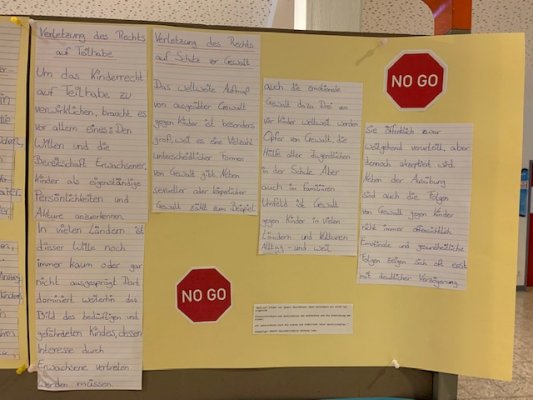 Verletzung des Rechts
auf Teilhabe
Um das Kinderrecht
auf Teilhabe zu
verwirklichen, braucht es
vor allem eines: Den
Willen und die
Bereitschaft Erwachsener,
Kinder als eigenständige
Persönlichkeiten und
Akteure anzuerkennen.
In vielen Ländern ist
dieser Wille noch
immer kaum oder gar
nicht ausgeprägt. Dort
dominiert weiterhin das
Bild des bedürftigen und
gefährdeten Kindes, dessen
Interesse durch
Erwachsene vertreten
werden müssen.
Verletzung des Rechts
auf Schutz vor Gewalt
Das weltweite Auftreten
von ausgeübter Gewalt
gegen Kinder ist besonders
groß, weil es eine Vielzahl
unterschiedlicher Formen
von Gewalt gibt. Neben
sexueller oder körperlicher
Gewalt zählt zum Beispiel
auch die emotionale
Gewalt dazu. Drei von
vier Kinder weltweit werden
Opfer von Gewalt, die
Hälfte aller Jugendlichen
in der Schule. Aber
auch im familiären
Umfeld ist Gewalt
gegen Kinder in vielen
Ländern und Kulturen
Alltag - und weil
NO GO
Sie öffentlich zwar
weitgehend verurteilt, aber
dennoch akzeptiert wird.
Neben der Ausübung
sind auch die Folgen
von Gewalt gegen Kinder
nicht immer offensichtlich
Emotionale und gesundheitliche
Folgen zeigen sich oft erst
mit deutlicher Verzögerung.
NO GO